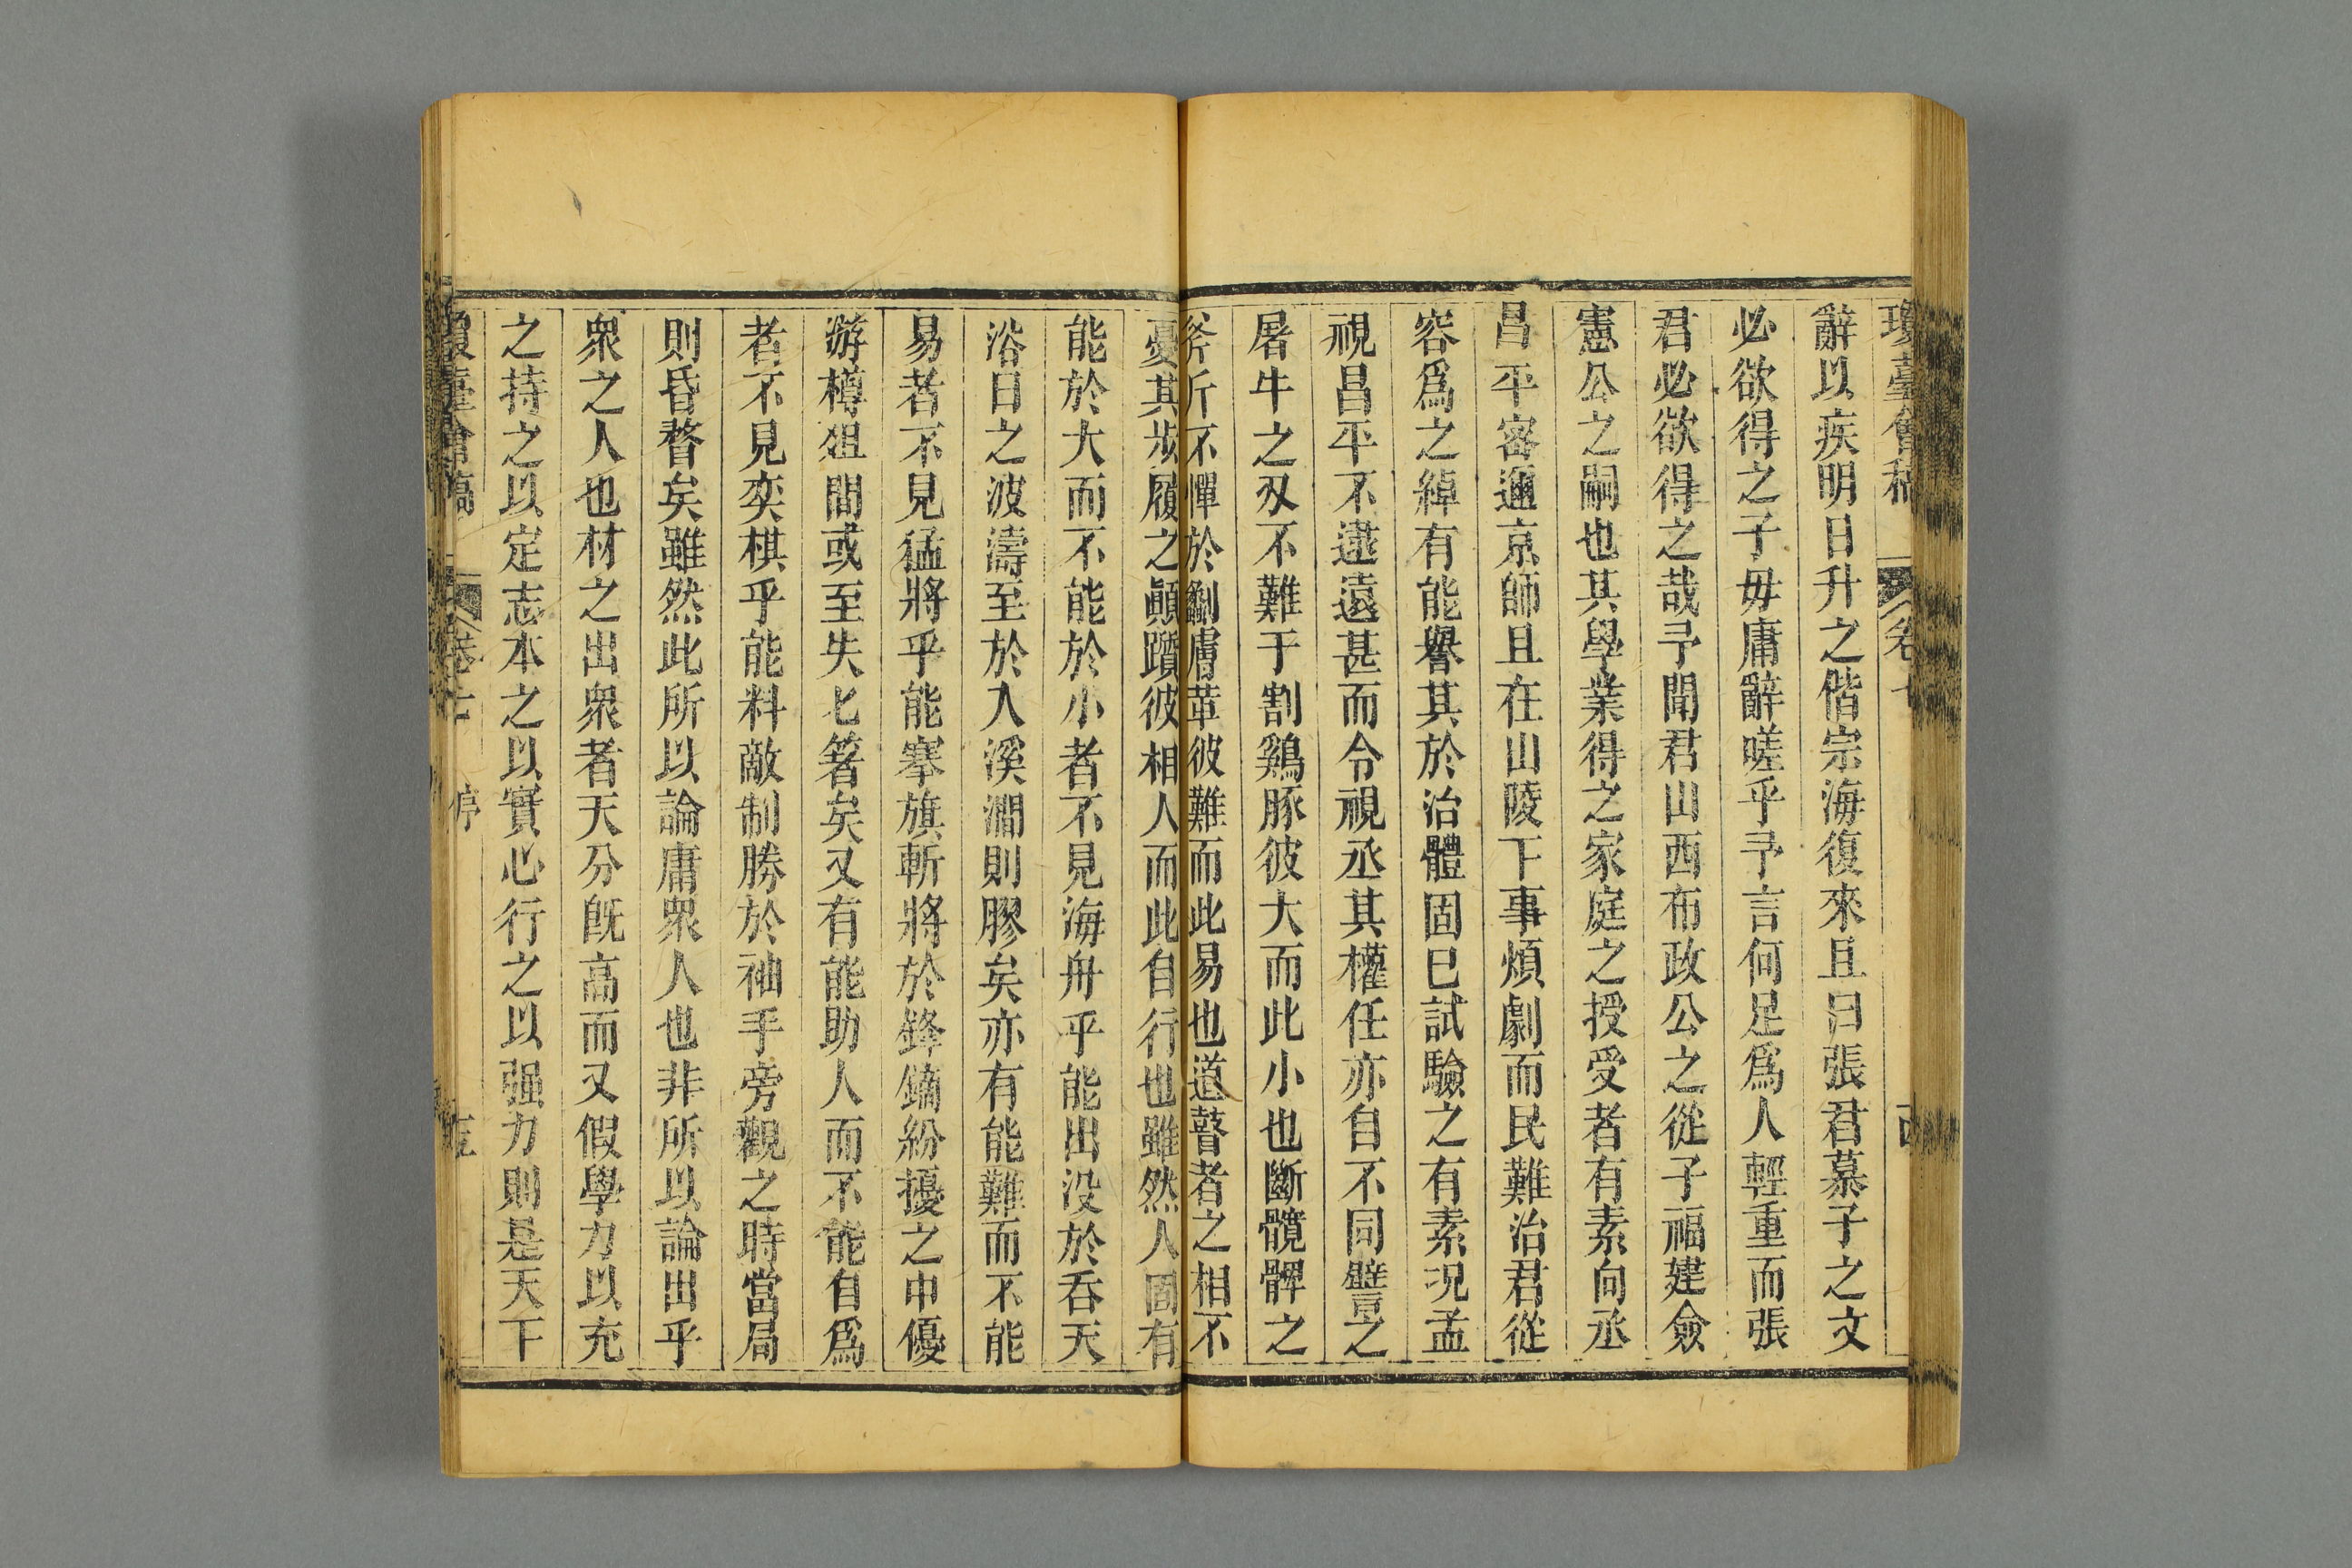 辭以疾明日升之偕宗海復來且曰張君慕子之文
必欲得之子毋庸辭嗟乎予言何足爲人輕重而張
君必欲得之哉予聞君山西布政公之從子福建僉
憲公之嗣也其學業得之家庭之授受者有素向丞
昌平密邇京師且在山陵下事煩劇而民難治君從
容爲之綽有能譽其於治體固已試驗之有素況孟
視昌平不逮遠甚而令視丞其權任亦自不同譬之
屠牛之刄不難于割鷄豚彼大而此小也斷髖髀之
斧斤不憚於劙膚革彼難而此易也道瞽者之相不
憂其步履之顚躓彼相人而此自行也雖然人固有
能於大而不能於小者不見海舟乎能出没於吞天
浴日之波濤至於入溪澗則膠矣亦有能難而不能
易者不見猛將乎能搴旗斬將於鋒鏑紛擾之中優
游樽俎間或至失匕箸矣又有能助人而不能自爲
者不見奕棋乎能料敵制勝於袖手旁觀之時當局
則昏瞀矣雖然此所以論庸衆人也非所以論出乎
衆之人也材之出衆者天分旣高而又假學力以充
之持之以定志本之以實心行之以强力則是天下
瓊臺會稿 卷七